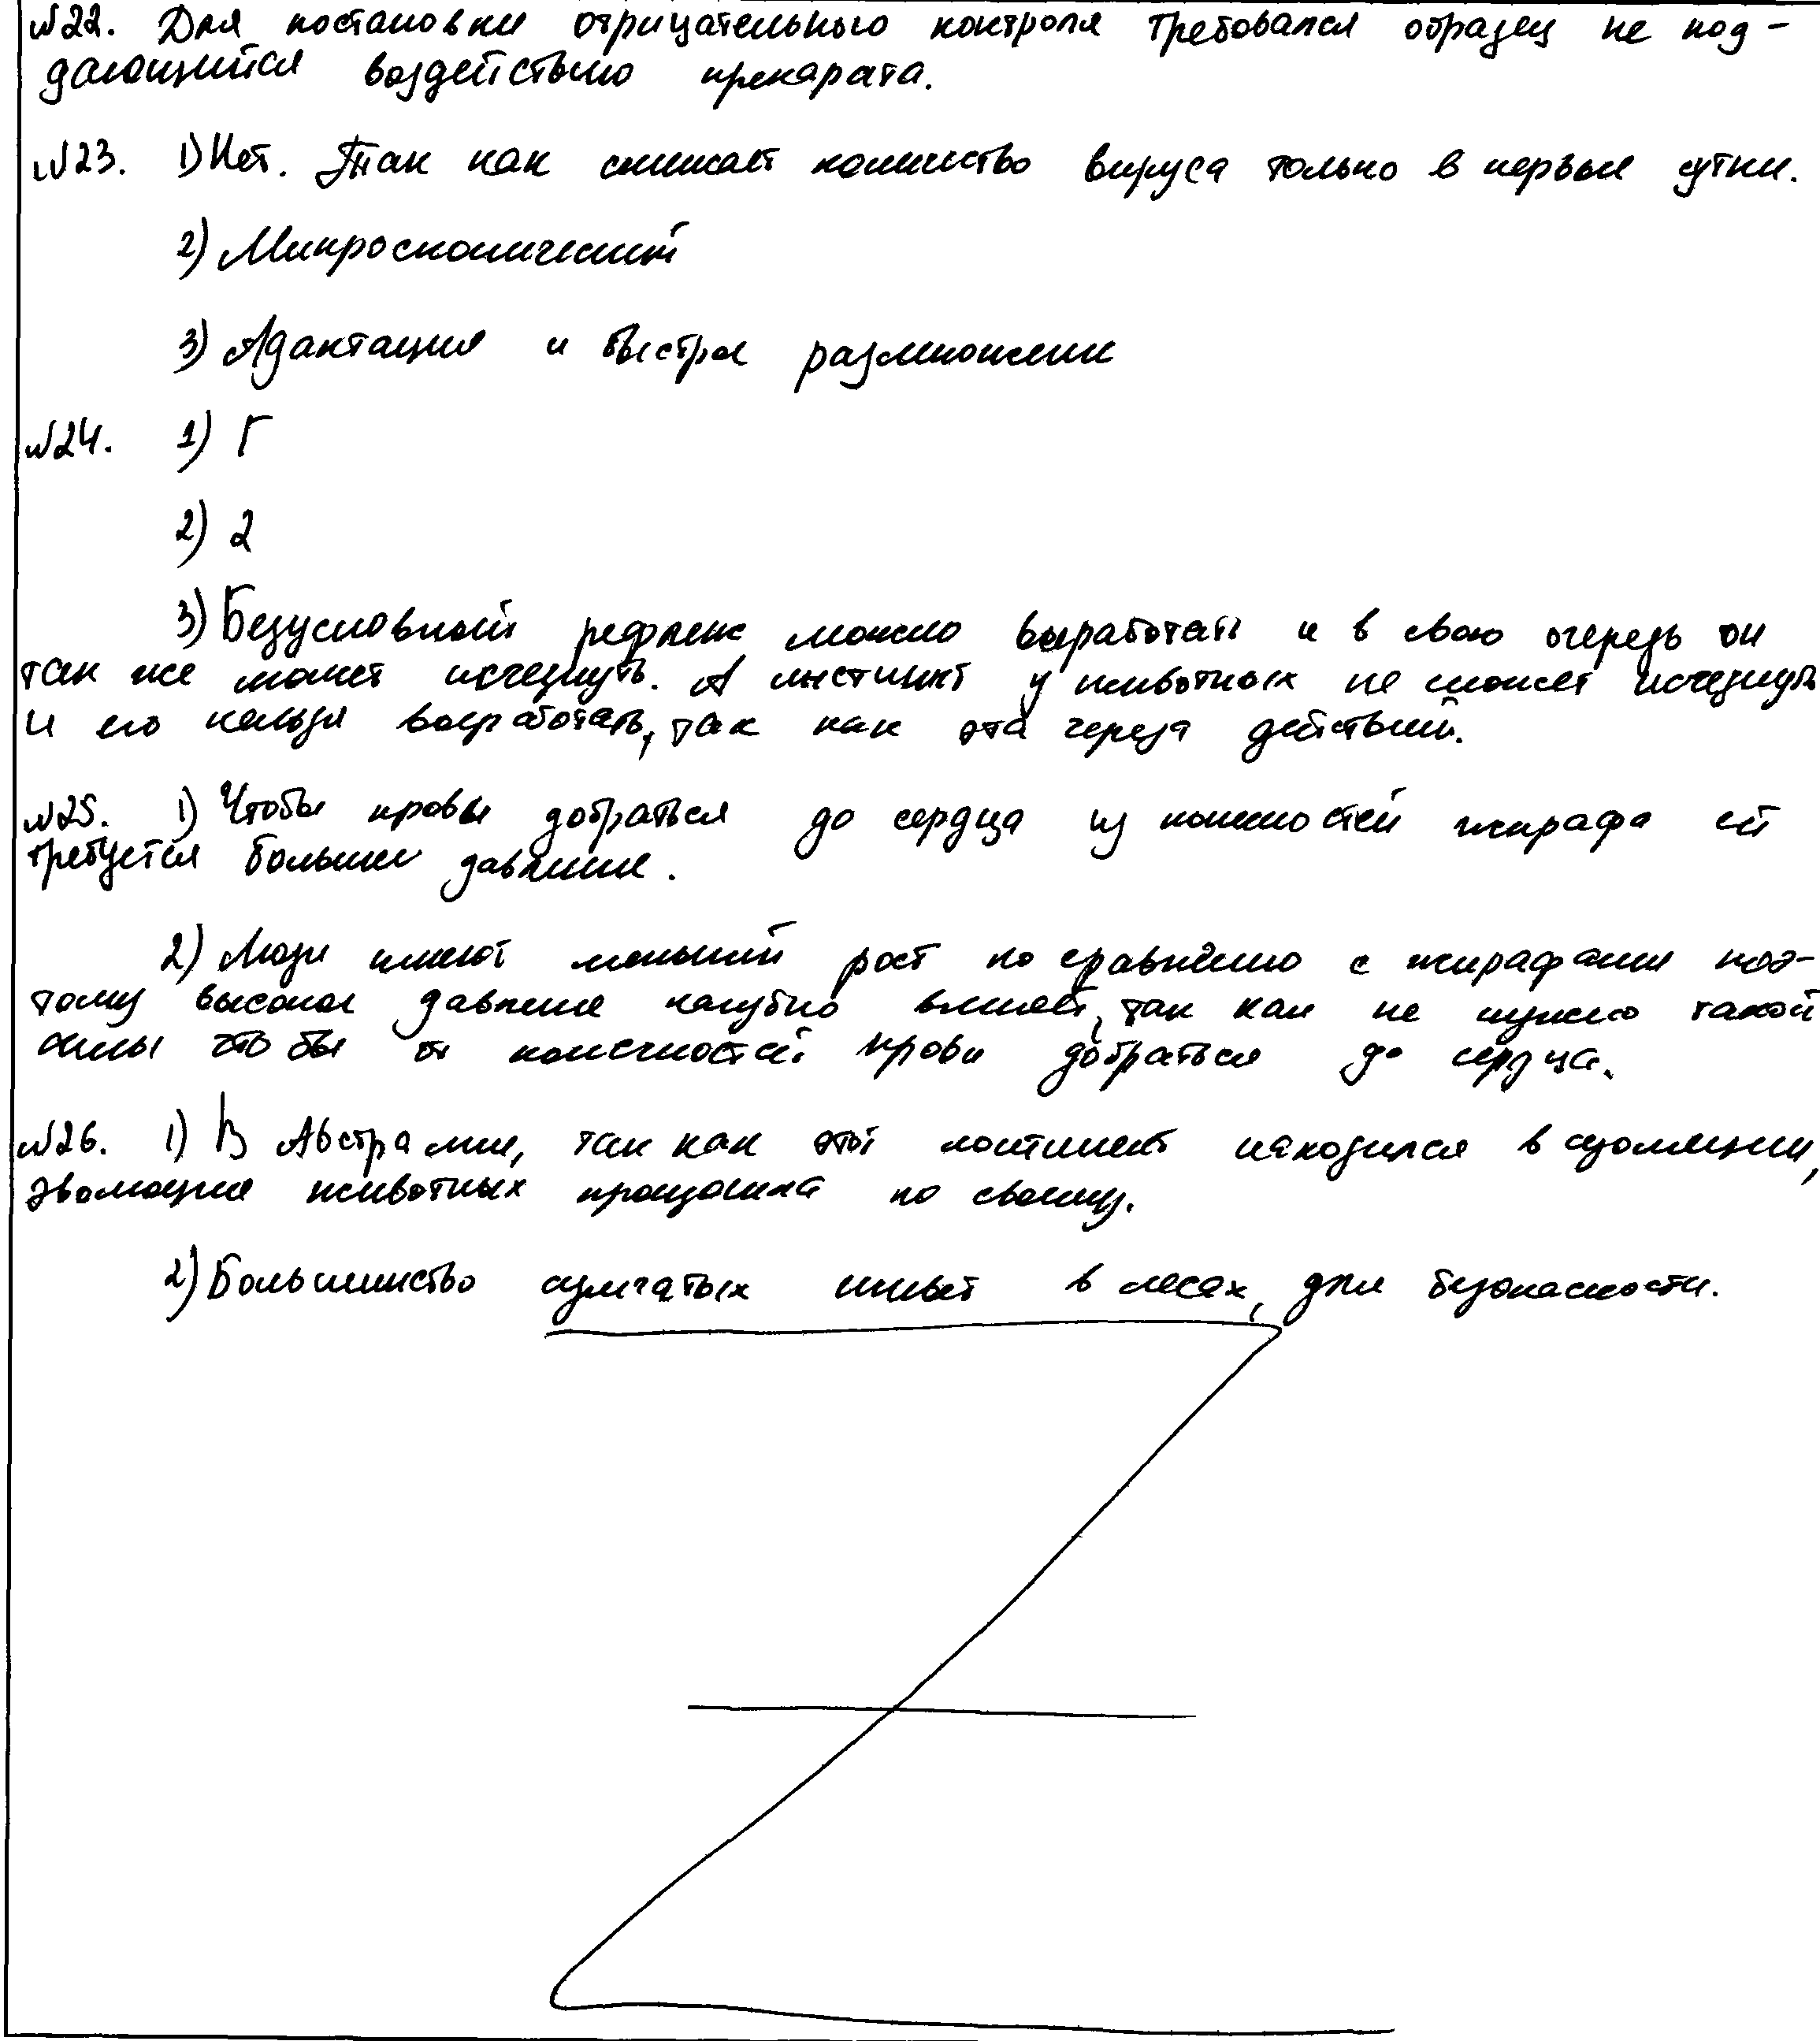 №22. Для постановки отрицательного контроля требовался образец не под-
дающийся воздействию препарата.
№23. 1) Нет. Так как снижает количество вируса только в первые сутки.
2) Микроскопический
3) Адаптация и быстрое размножение
№24. 1) Г
2) 2
3) Безусловный рефлекс можно выработать и в свою очередь он
так же может исчезнуть. А инстинкт у животных не может исчезнуть
и его нельзя выработать, так как эта череда действий.
№25. 1) Чтобы кровы добраться до сердца из конечностей жирафа ей
требуется большее давление.
2) Люди имеют меньший рост по сравнению с жирафами поэ-
тому высокое давление пагубно влияет, так как не нужно такой
силы что бы от конечностей крови добраться до сердца.
№26. 1) В Австралии, так как этот континент находился в изоляции,
эволюция животных проищошла по своему.
2) Большинство сумчатых живёт в лесах, для безопасности.